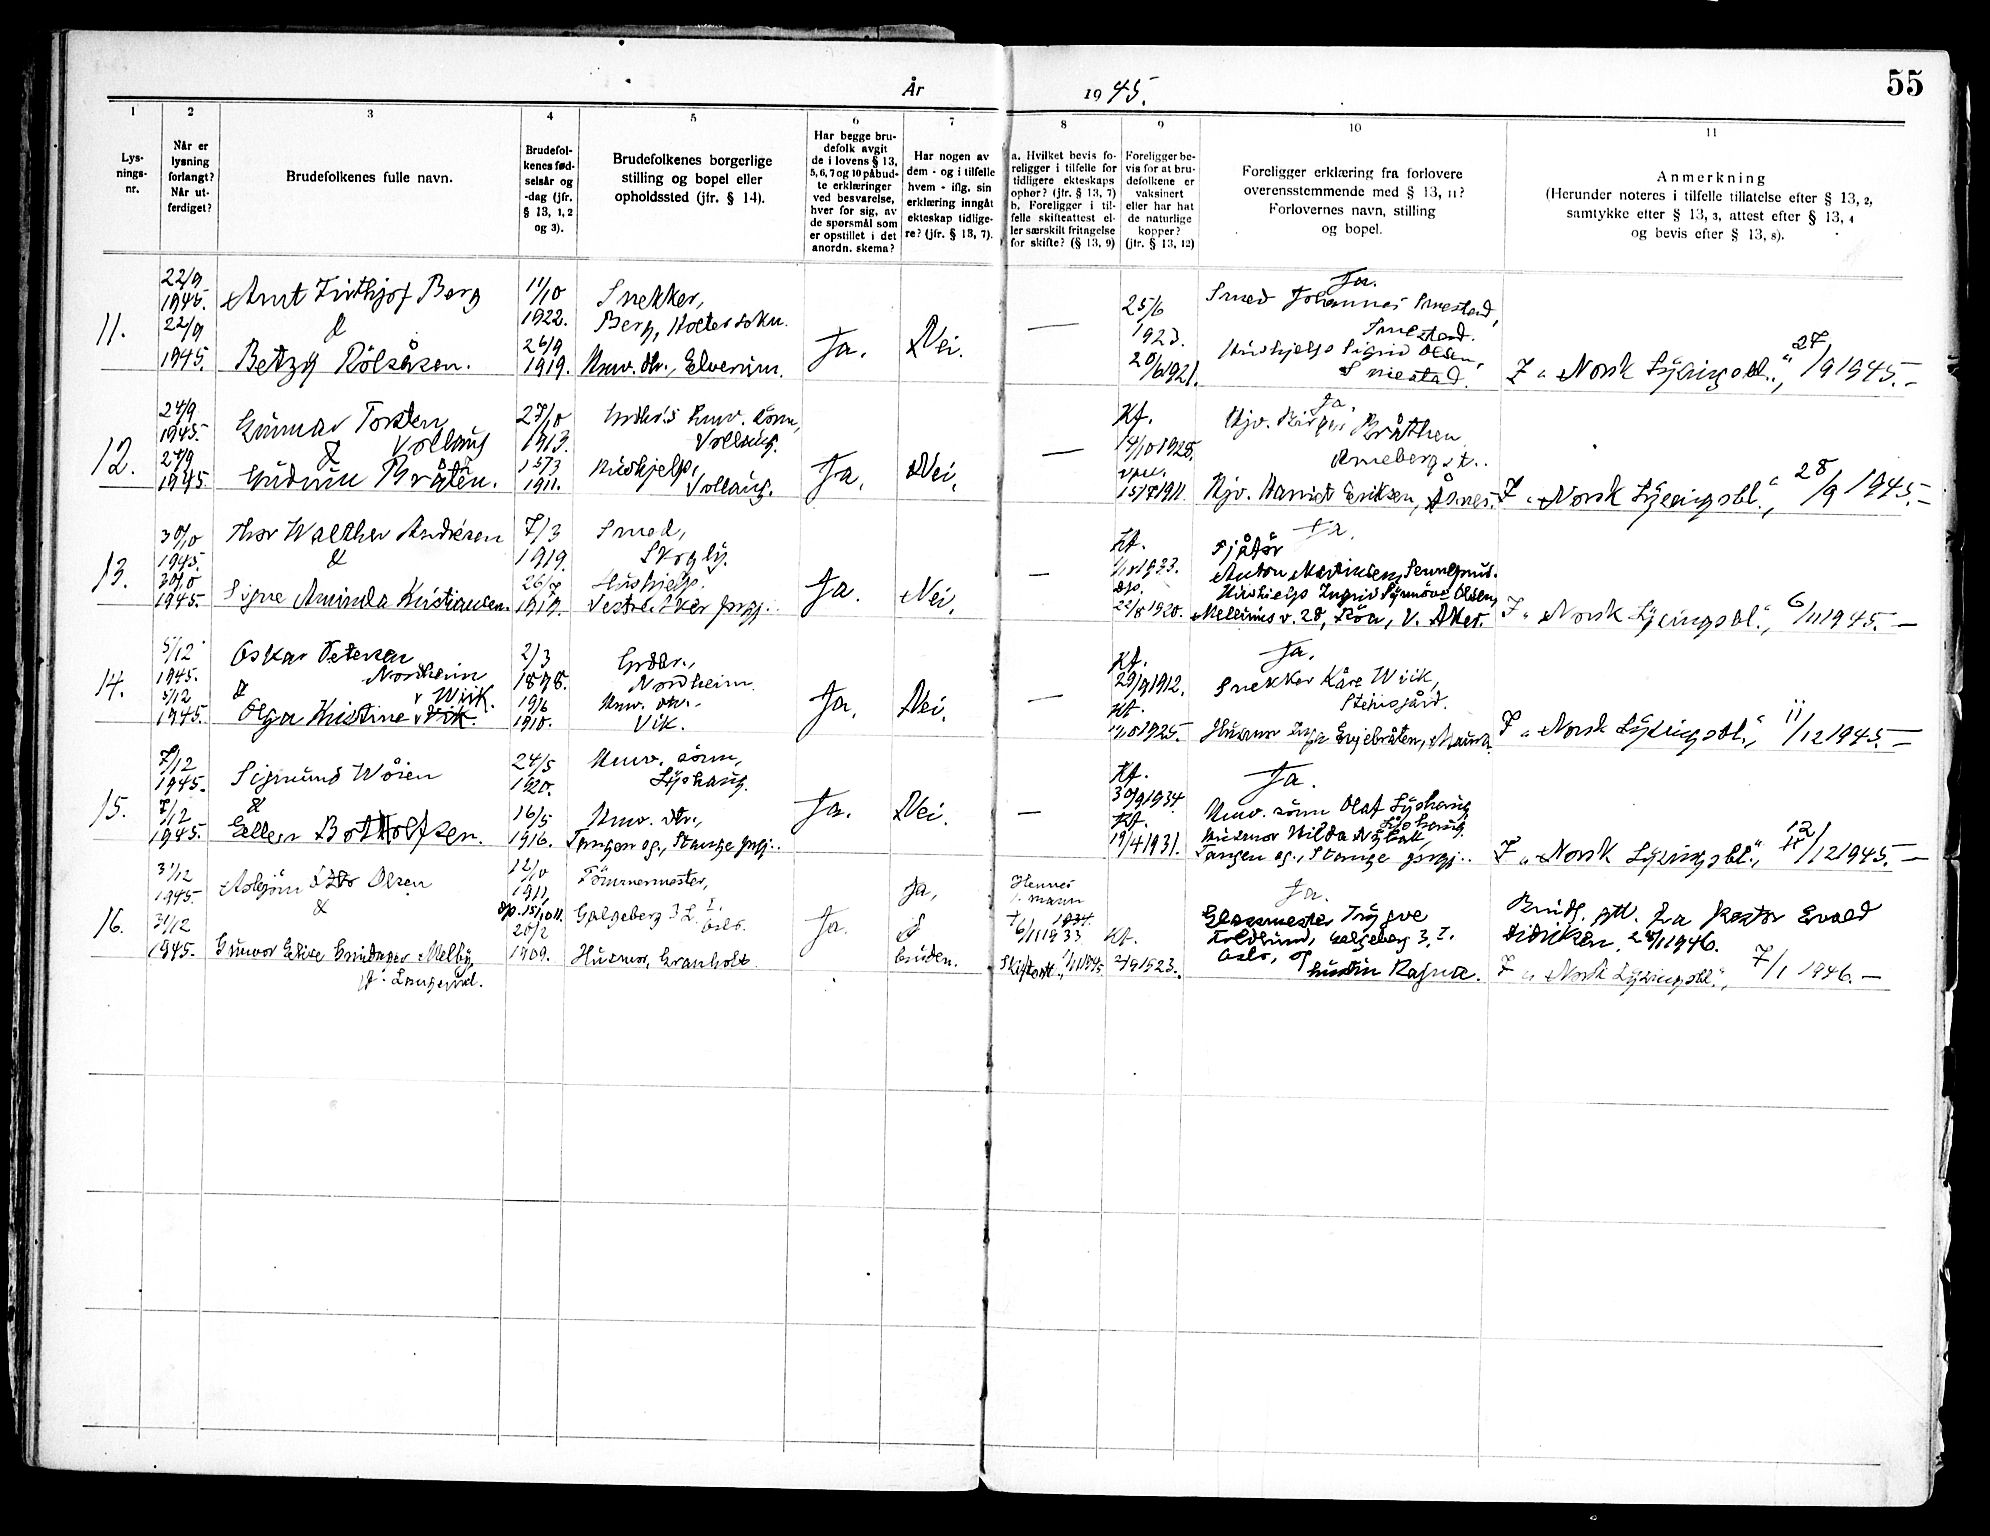 55
År 1945.
1
2
3
4
5
6
7
8
9
10
11
Lys-
nings-
nr.
Når er
lysning
forlangt?
Når ut-
ferdiget?
Brudefolkenes fulle navn.
Brudefol-
kenes fød-
selsår og
-dag (jfr.
§ 13, 1, 2
og 3).
Brudefolkenes borgerlige
stilling og bopel eller
opholdssted (jfr. § 14).
Har begge bru-
defolk avgit
de i lovens § 13,
5, 6, 7 og 10 påbud-
te erklæringer
ved besvarelse,
hver for sig, av
de spørsmål som
er opstillet i det
anordn. skema?
Har nogen av
dem - og i tilfelle
hvem - iflg. sin
erklæring inngått
ekteskap tidlige-
re? (jfr. § 13, 7).
a. Hvilket bevis fo-
religger i tilfelle for
tidligere ekteskaps
ophør? (jfr. § 13, 7)
b. Foreligger i til-
felle skifteattest el-
ler særskilt fritagelse
for skifte? (§ 13, 9)
Foreligger be-
vis for at bru-
defolkene er
vaksinert
eller har hat
de naturlige
kopper?
(jfr. § 13, 12)
Foreligger erklæring fra forlovere
overensstemmende med § 13, 11?
Forlovernes navn, stilling
og bopel.
Anmerkning
(Herunder noteres i tilfelle tillatelse efter § 13, 2,
samtykke efter § 13, 3, attest efter § 13, 4
og bevis efter § 13, 8).
11.
22/9
1945.
22/9
1945.
Arnt Frithjof Berg
&
Betzy Rölsåsen.
11/10
1922.
26/9
1919.
Snekker,
Berg,
Ungv. dtr., Elverum.
Ja.
Nei.
—
25/6
1923.
20/6 1921.
Ja.
Smed Johannes Smestad,
Smestad.
Hushjelp Sigrid Olsen,
Smestad.
I "Norsk Lysningsbl.", 27/9 1945.—
12.
24/9
1945.
24/9
1945
Gunnar Torsten
& Vollaug
Gudrun Bråten.
27/10
1913.
1911.
Vollaug.
Hushjelp,
Vollaug.
Ja.
Nei.
—
Kf.
14/10 1928.
1911.
Ja
Bråthen
Arneberg st..
Eriksen, Åsnes.
I "Norsk Lysningsbl.", 28/9 1945.—
13.
30/10
1945.
30/10
1945.
Thor Walther Andresen
&
Signe Aminda Kristiansen.
7/3
1919.
26/8
1919.
Smed,
Skogly.
Hushjelp.
Vestre Aker prgj.
Ja.
Nei.
—
Kf.
1933.
dp.
22/8 1920.
Ja.
Sjåför
Anton Martinsen,
Hushjelp Ingrid Synnöve Olsen,
v. 28, Röa, V. Aker.
I "Norsk Lysningsbl.", 6/11 1945.—
14.
5/12
1945.
5/12
1945.
Oskar Petersen
Nordheim
& v Wiik.
Olga Kristine Vik.
2/3
1898.
19/6
1910.
Grdbr.,
Nordheim.
Ungv. dtr.,
Vik.
Ja.
Nei.
—
Kf.
29/9 1912.
Kf.
1925.
Ja.
Snekker Kåre Wiik,
Stensgård.
Husmor Inga
I "Norsk Lysningsbl.", 11/12 1945.—
15.
7/12
1945.
7/12
1945.
Sigmund Wåien
&
Ellen Botholfsen.
24/5
1920.
16/5
1916.
Ungv. sönn,
Lyshaug.
Ungv. dtr.,
Tangen og., Stange prgj..
Ja.
Nei.
—
Kf.
30/9 1934.
Kf.
19/4 1931.
Ja.
Ungv. sönn Olaf Lyshaug,
Lyshaug.
Husmor Hilda Nybak,
Tangen og., Stange prgj..
I "Norsk Lysningsbl.", 12/12 1945.—
16.
31/12
1945.
31/12
1945.
Asbjörn Olsen
&
Gunvor Elise Melby,
f: Langerud.
12/10
1911,
20/2
1909.
Tömmermester,
Galgeberg 3 I.
Oslo.
Husmor, Granholt.
Ja.
Ja,
bruden.
Hennes
mann
†
6/11 1933
Skifteatt.
Kf.
1923.
Ja.
Glassmester Trygve
Galgeberg 3, I.
Oslo, og
hustru Ragna.
Brudf. att. fra Pastor Evald
Didriksen, 1946.
I "Norsk Lysningsbl.", 7/1 1946.—